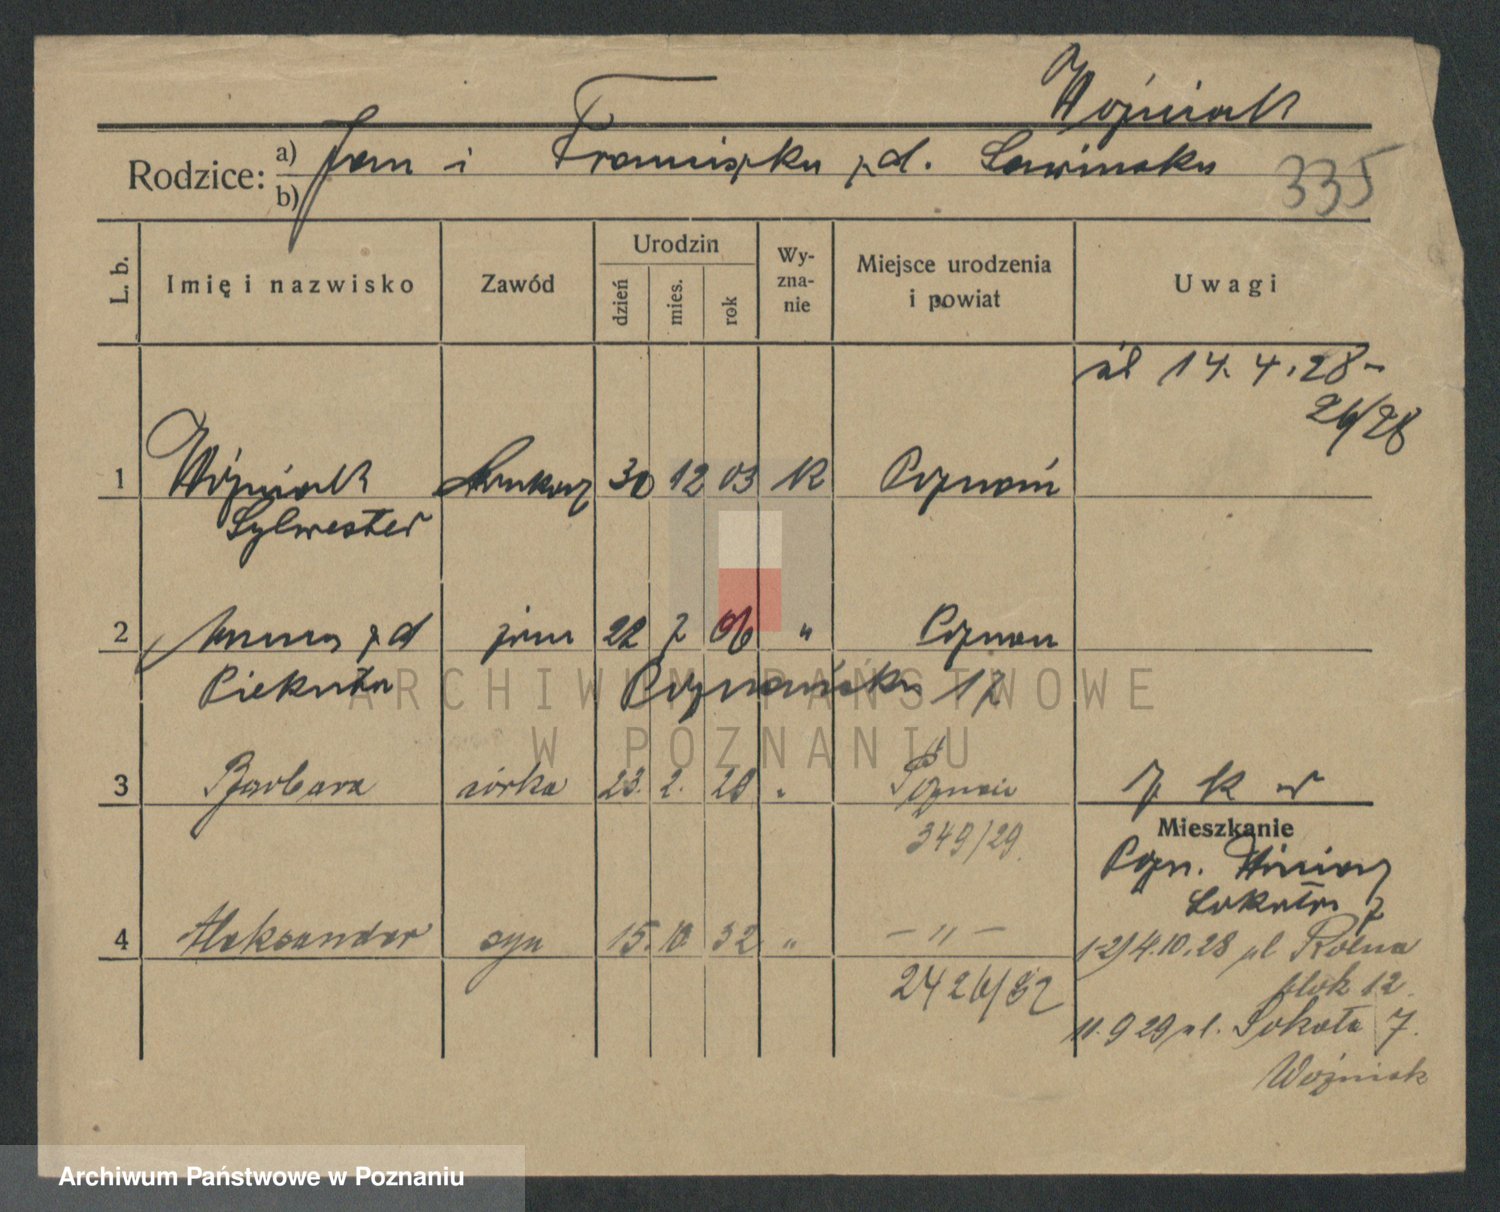 Woźniak
Rodzice: a) b) Jan i Franciszka z d. Sawińska
335
L. b.
Imię i nazwisko
Zawód
Urodzin
dzień
mies.
rok
Wy-
zna-
nie
Miejsce urodzenia
i powiat
Uwagi
śl 14.4.28 -
26/28
1 Woźniak drukarz 30 12 03 rk Poznań
Sylwester
2 Anna z d żona 22 7 06 " Poznań
Piekuta Poznańska 17
3 Barbara córka 23. 2. 29 " Poznań
349/29.
4 Aleksander syn 15. 10. 32 " - " -
2426/32
Mieszkanie
Pozn. Winiary
Sokoła 7
1-2) 4.10.28 ul Rolna
blok 12.
11.9 29 ul. Sokoła 7.
Woźniak
ARCHIWUM PAŃSTWOWE
W POZNANIU
Archiwum Państwowe w Poznaniu